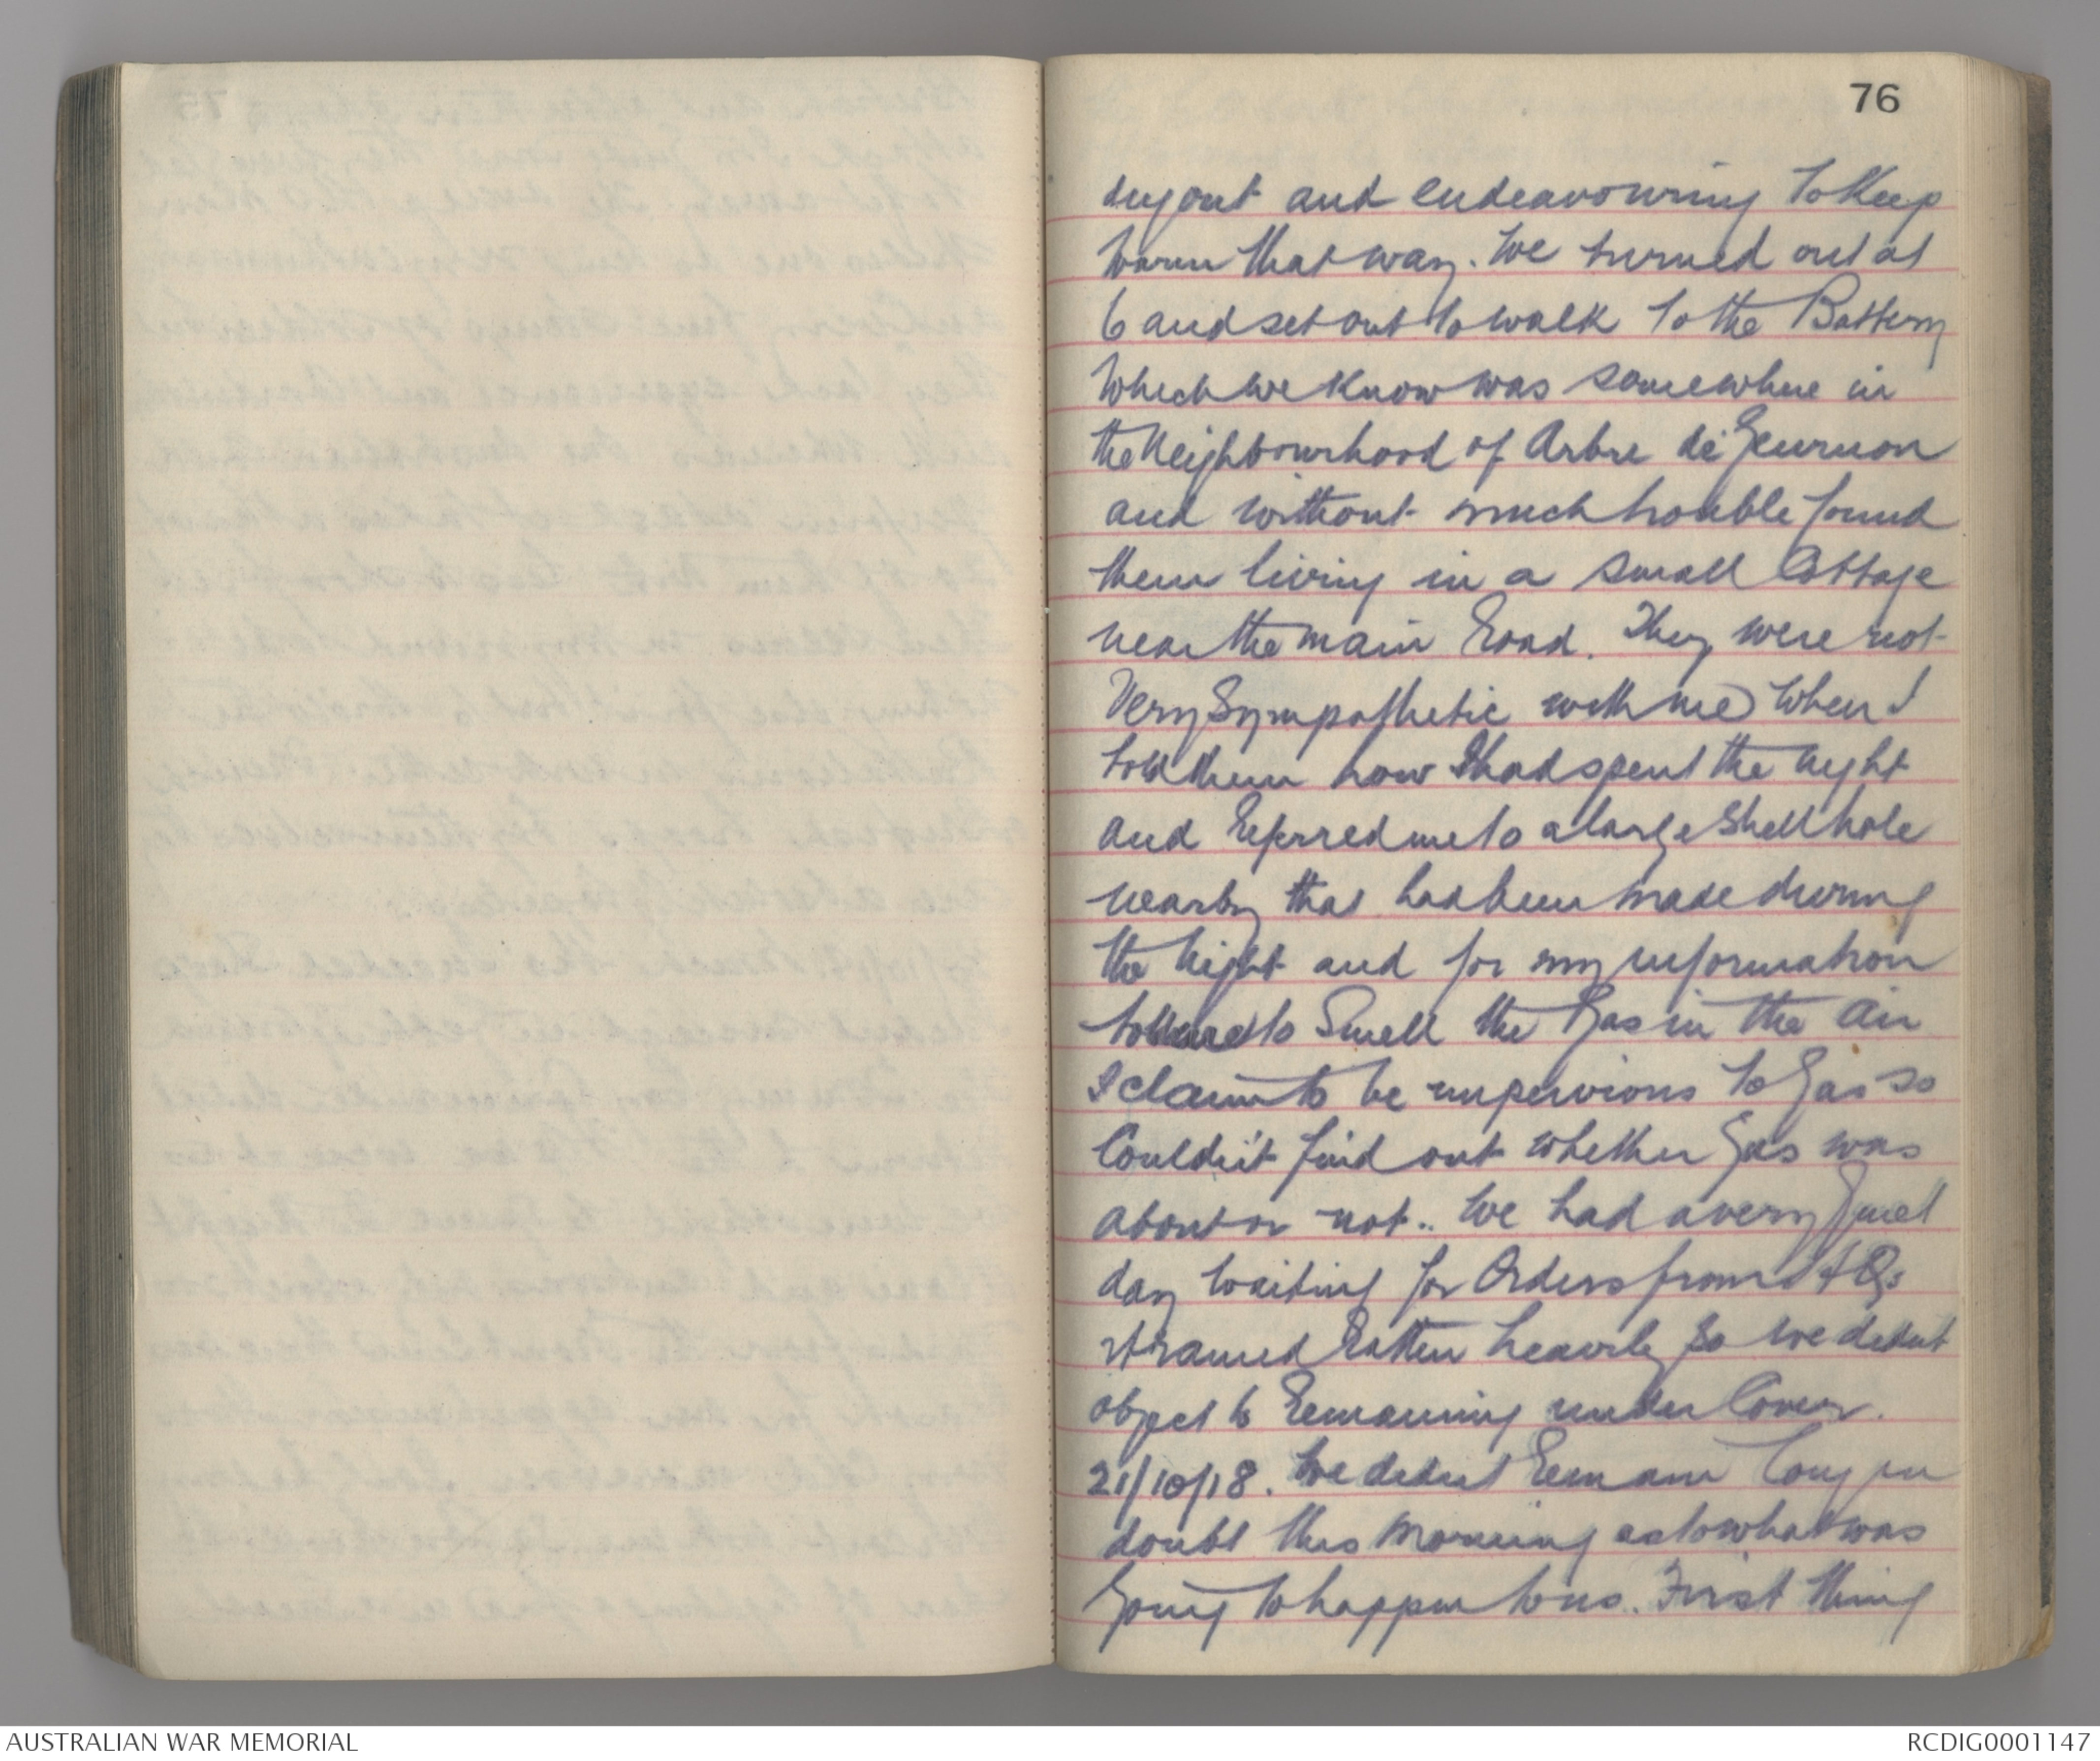 76
dugout and endeavouring to Keep
warm that way. We turned out at
6 and set out to walk to the Battery
which we know was somewhere in
the Neighbourhood of Arbre de Guernon
and without much trouble found
them living in a small Cottage
near the main Road. They were not
Very Sympathetic with me when I
told them how I had spent the night
and Referred me to a large Shell hole
nearby that had been made during
the Night and for my information
told me to Smell the Gas in the Air
I claim to be impervious to Gas so
Couldn't find out whether Gas was
about or not.. We had a very Quiet
day waiting for Orders from HQs
It rained Rather heavily so we didnt
object to Remaining under Cover.
21/10/18. We didnt Remain long in
doubt this Morning as to what was
Going to happen to us. First thing
AUSTRALIAN WAR MEMORIAL
RCDIG0001147